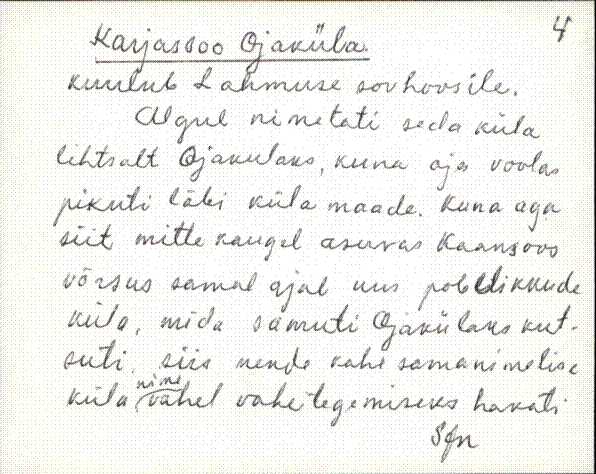 4
Karjassoo Ojaküla.
kuulub Lahmuse sovhoosile.
Algul nimetati seda küla
lihtsalt Ojakulaks, kuna oja voolas
pikuti läbi küla maade. Kuna aga
siit mitte kaugel asuvas Kaansoos
võrsus samal ajal uus pobolikkude
küla, mida samuti Ojakülaks kut-
suti, siis nende kahe samanimelise
küla nime vahel vahetegemiseks hakati